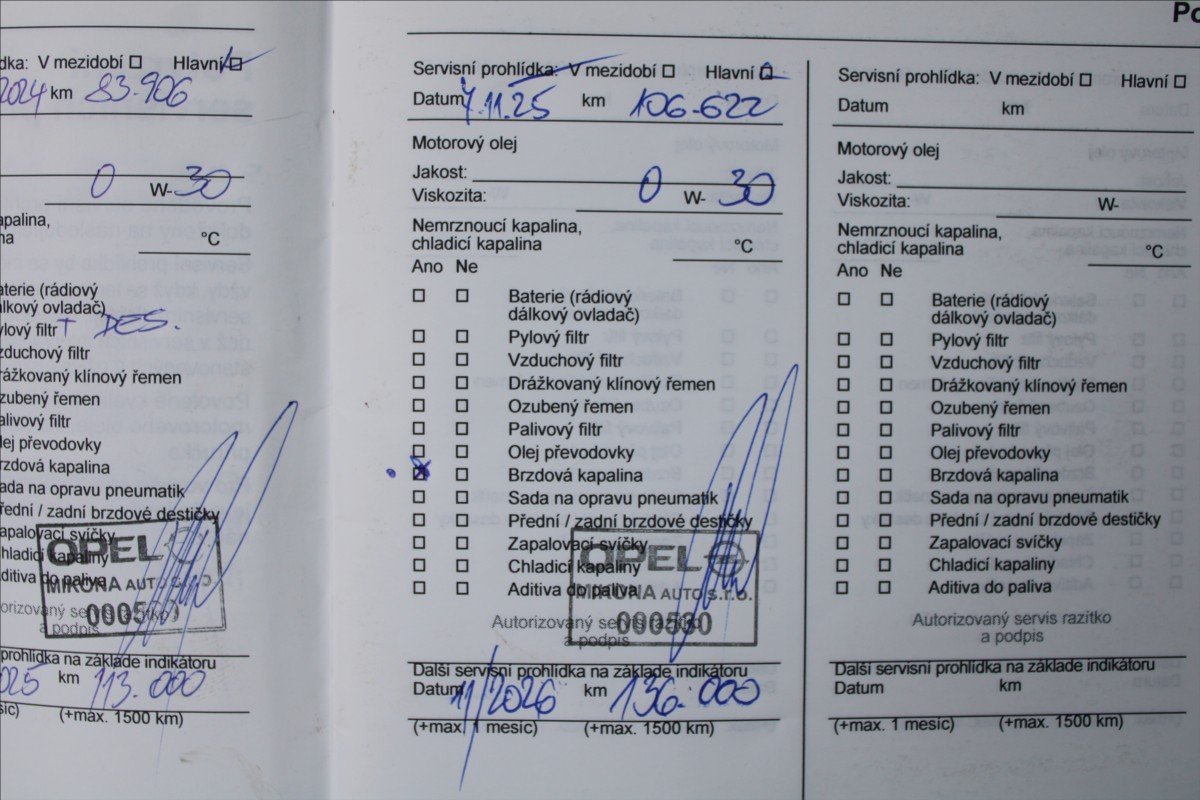 Po
dka: V mezidobí ☐ Hlavní ☐
2024 km 83.906
0 W-30
kapalina,
na °C
aterie (rádiový
álkový ovladač)
ylový filtr + DES.
zduchový filtr
rážkovaný klínový řemen
zubený řemen
alivový filtr
lej převodovky
rzdová kapalina
ada na opravu pneumatik
řední / zadní brzdové destičky
apalovací svíčky
hladicí kapaliny
ditiva do paliva
OPEL
MIKONA AUTO
orizovaný servis razítko
a podpis
prohlídka na základe indikátoru
025 km 113.000
síc) (+max. 1500 km)
Servisní prohlídka: V mezidobí ☐ Hlavní ☐
Datum 7.11.25 km 106-622
Motorový olej
Jakost:
Viskozita: 0 W-30
Nemrznoucí kapalina,
chladicí kapalina °C
Ano Ne
☐ ☐ Baterie (rádiový
dálkový ovladač)
☐ ☐ Pylový filtr
☐ ☐ Vzduchový filtr
☐ ☐ Drážkovaný klínový řemen
☐ ☐ Ozubený řemen
☐ ☐ Palivový filtr
☐ ☐ Olej převodovky
☒ ☐ Brzdová kapalina
☐ ☐ Sada na opravu pneumatik
☐ ☐ Přední / zadní brzdové destičky
☐ ☐ Zapalovací svíčky
☐ ☐ Chladicí kapaliny
☐ ☐ Aditiva do paliva
OPEL
MIKONA AUTO s.r.o.
000580
Autorizovaný servis razítko
a podpis
Další servisní prohlídka na základe indikátoru
Datum 11/2026 km 136.000
(+max. 1 mesíc) (+max. 1500 km)
Servisní prohlídka: V mezidobí ☐ Hlavní ☐
Datum km
Motorový olej
Jakost:
Viskozita: W-
Nemrznoucí kapalina,
chladicí kapalina °C
Ano Ne
☐ ☐ Baterie (rádiový
dálkový ovladač)
☐ ☐ Pylový filtr
☐ ☐ Vzduchový filtr
☐ ☐ Drážkovaný klínový řemen
☐ ☐ Ozubený řemen
☐ ☐ Palivový filtr
☐ ☐ Olej převodovky
☐ ☐ Brzdová kapalina
☐ ☐ Sada na opravu pneumatik
☐ ☐ Přední / zadní brzdové destičky
☐ ☐ Zapalovací svíčky
☐ ☐ Chladicí kapaliny
☐ ☐ Aditiva do paliva
Autorizovaný servis razítko
a podpis
Další servisní prohlídka na základe indikátoru
Datum km
(+max. 1 mesíc) (+max. 1500 km)